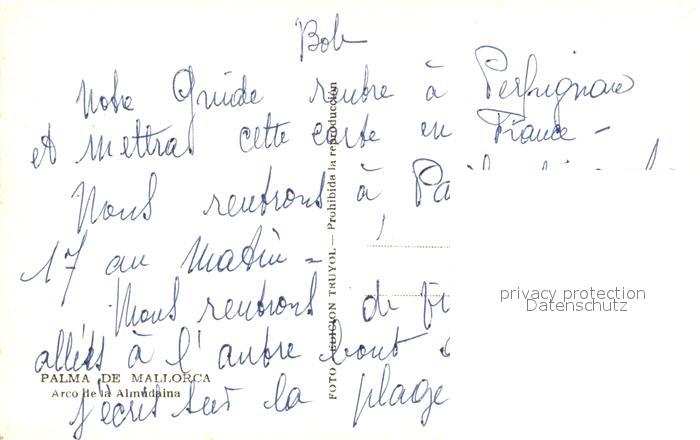 Bob
Notre Guide rentre à Perpignan
et mettra cette carte en France -
Nous rentrons à
17 au Matin -
Nous rentrons de
allées à l'autre bout
j'écris sur la plage
PALMA DE MALLORCA
Arco de la Almudaina
FOTO Y EDICION TRUYOL - Prohibida la reproducción
privacy protection
Datenschutz